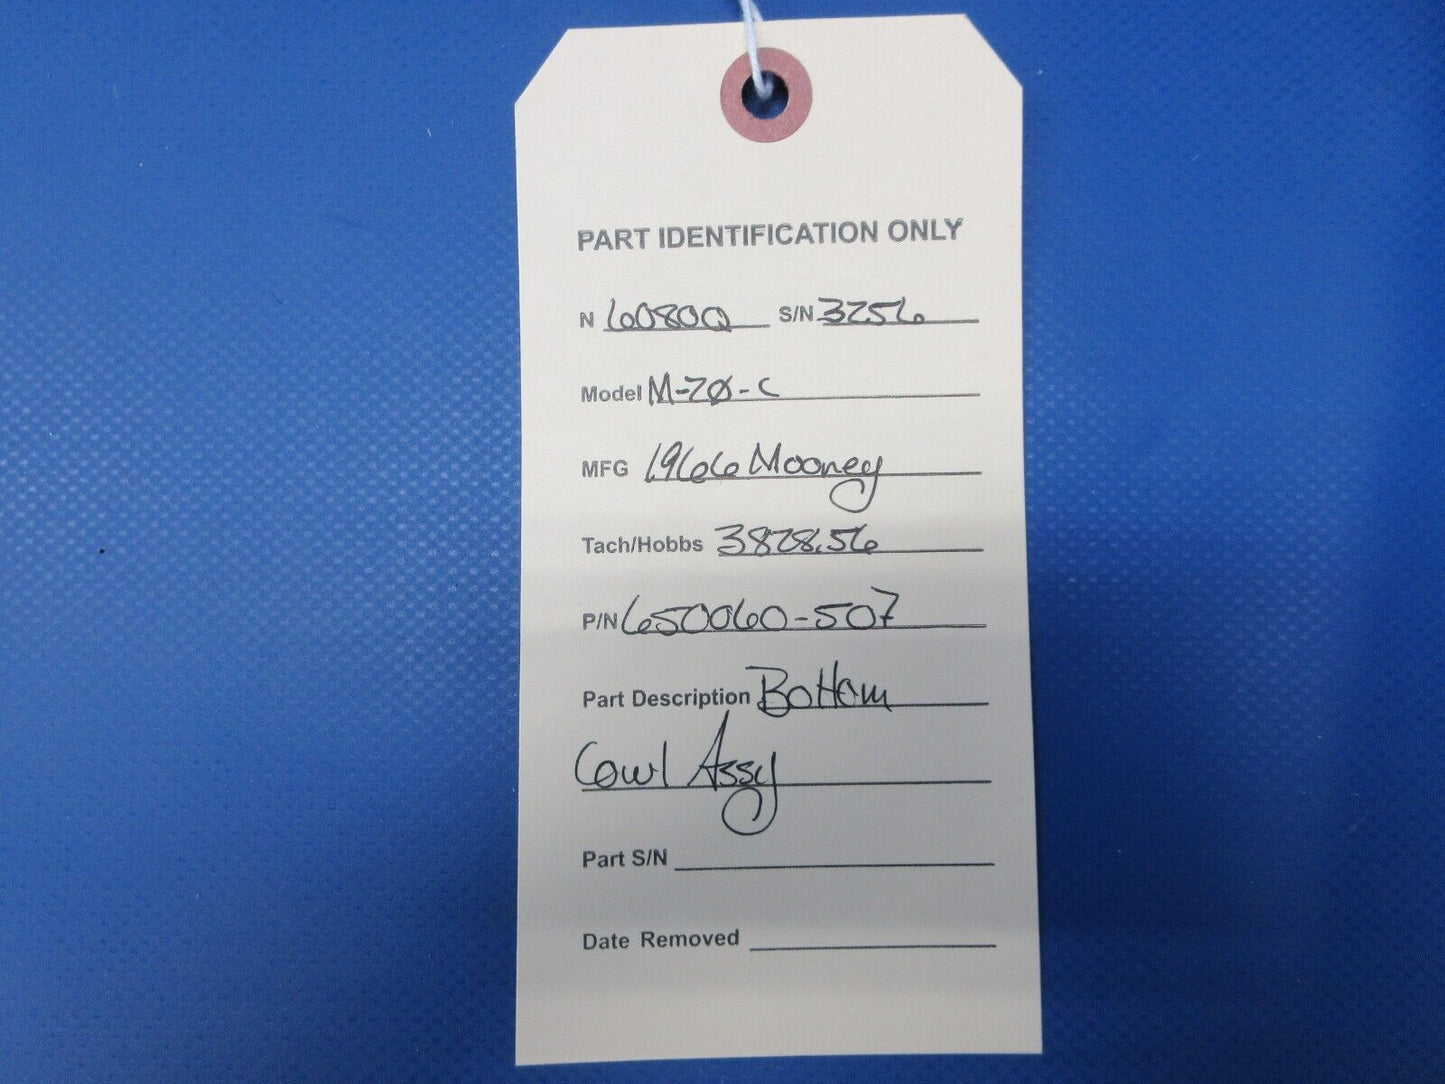 PART IDENTIFICATION ONLY
N 6080Q S/N 3256
Model M-20-C
MFG 1966 Mooney
Tach/Hobbs 3828.56
P/N 650060-507
Part Description Bottom
Cowl Assy
Part S/N
Date Removed